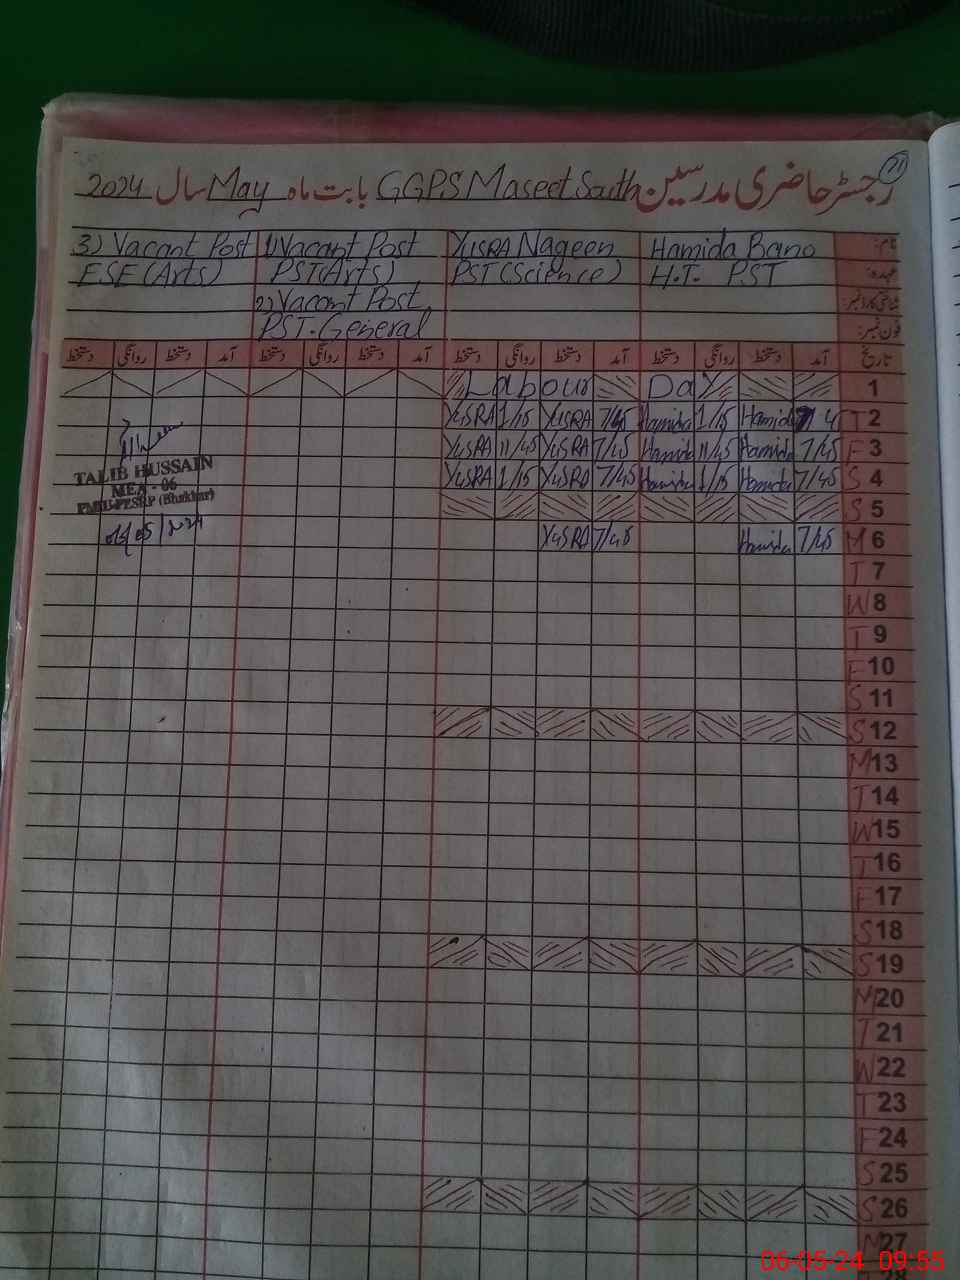 71
رجسٹر حاضری مدرسین GGPS Maseet South بابت ماہ May سال 2024
نام: Hamida Bano YUSRA Nageen 1) Vacant Post 3) Vacant Post
عہدہ: H.T. PST PST (Science) PST (Arts) ESE (Arts)
شناختی کارڈ نمبر: 2) Vacant Post
فون نمبر: PST. General
تاریخ آمد دستخط روانگی دستخط آمد دستخط روانگی دستخط آمد دستخط روانگی دستخط آمد دستخط روانگی دستخط
1 Labour Day
T 2 7/45 Hamida 1/15 Hamida 7/45 YUSRA 1/15 YUSRA
F 3 7/45 Hamida 11/45 Hamida 7/45 YUSRA 11/45 YUSRA
S 4 7/45 Hamida 1/15 Hamida 7/45 YUSRA 1/15 YUSRA
S 5
M 6 7/45 Hamida 7/45 YUSRA
TALIB HUSSAIN
MEA - 06
PMIU-PESRP (Bhakkar)
06/05/2024
T 7
W 8
T 9
F 10
S 11
S 12
M 13
T 14
W 15
T 16
F 17
S 18
S 19
M 20
T 21
W 22
T 23
F 24
S 25
S 26
M 27
06-05-24 09:55